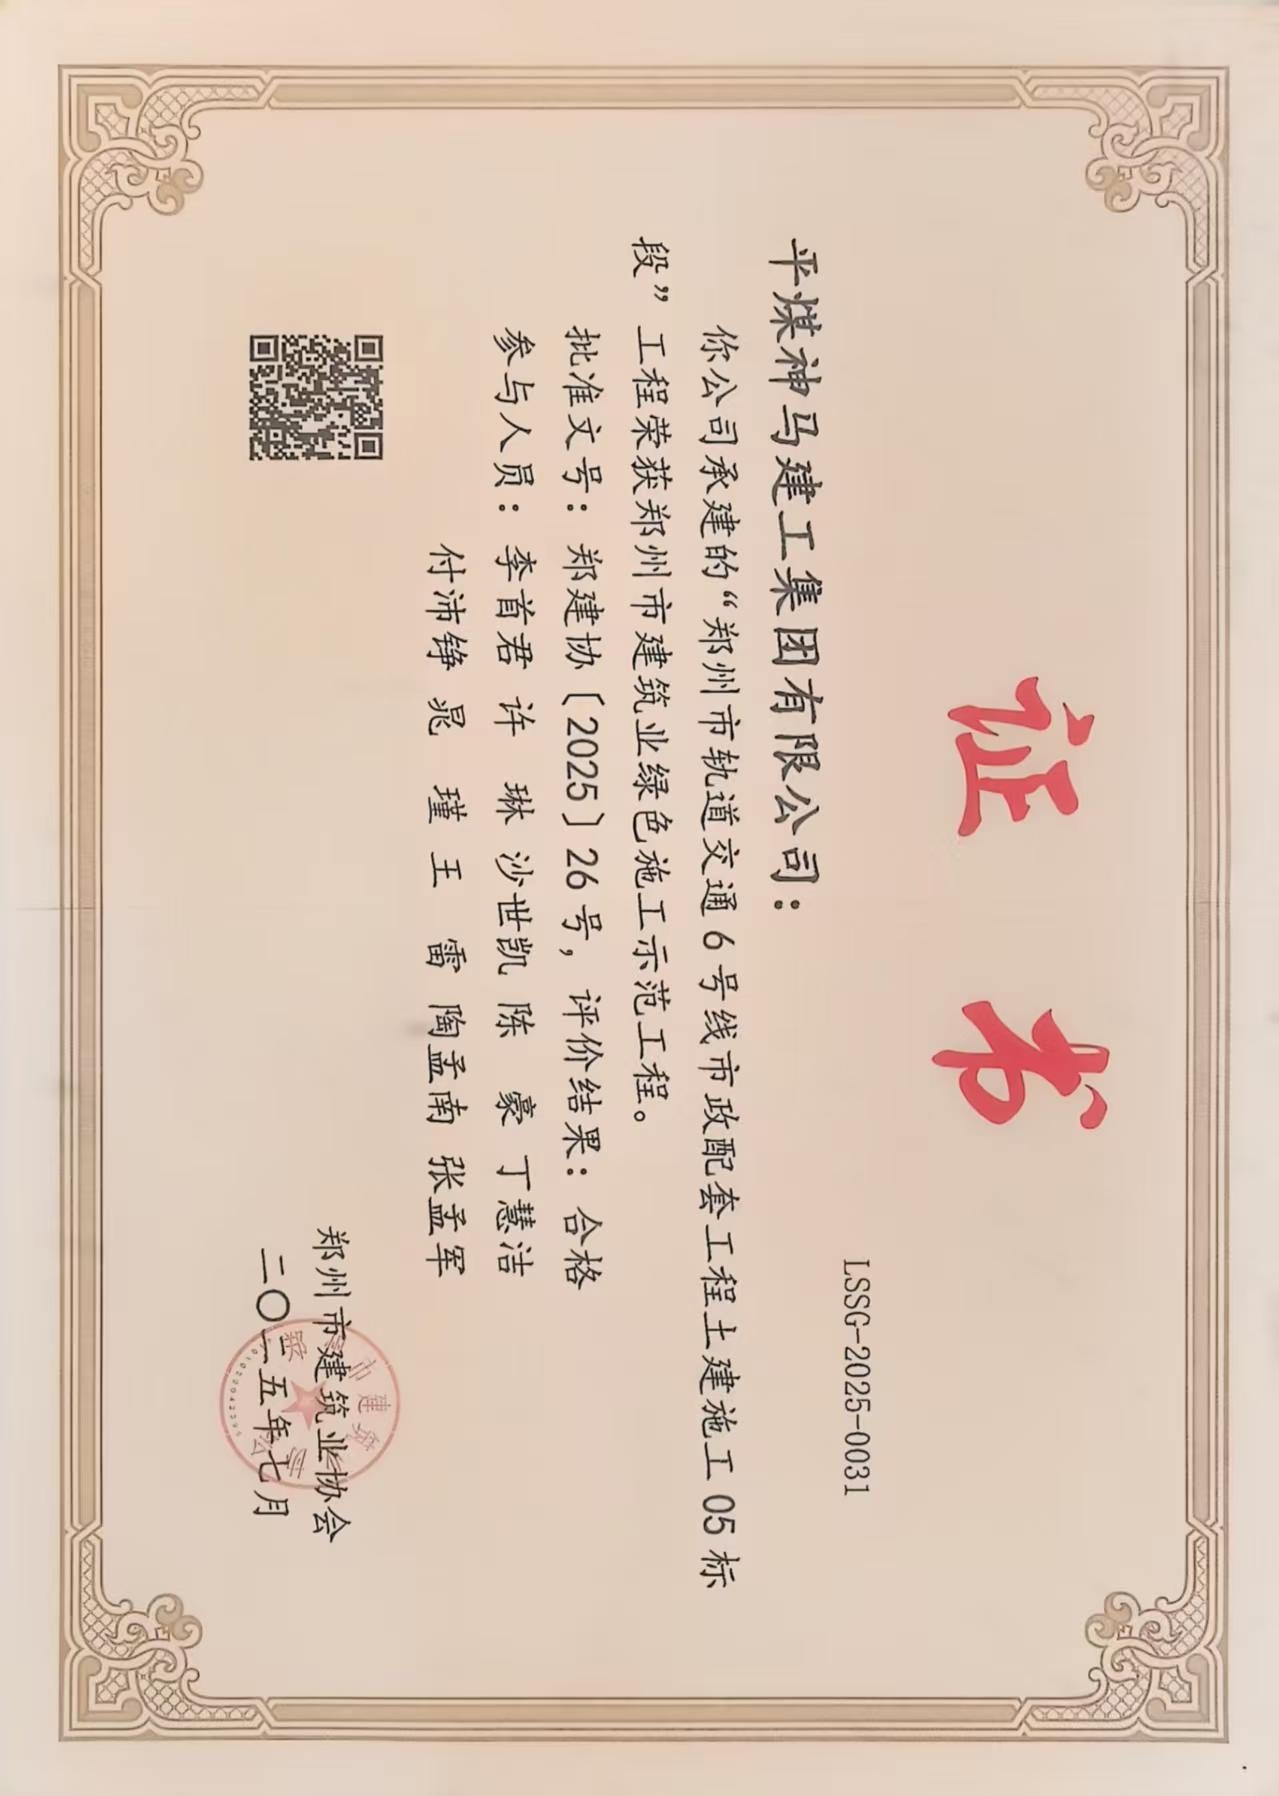 证书
LSSG-2025-0031
平煤神马建工集团有限公司：
你公司承建的“郑州市轨道交通6号线市政配套工程土建施工05标
段”工程荣获郑州市建筑业绿色施工示范工程。
批准文号：郑建协〔2025〕26号，评价结果：合格
参与人员：李首君 许 琳 沙世凯 陈 豪 丁慧洁
付沛铮 晁 瑾 王 雷 陶孟南 张孟军
郑州市建筑业协会
二〇二五年七月